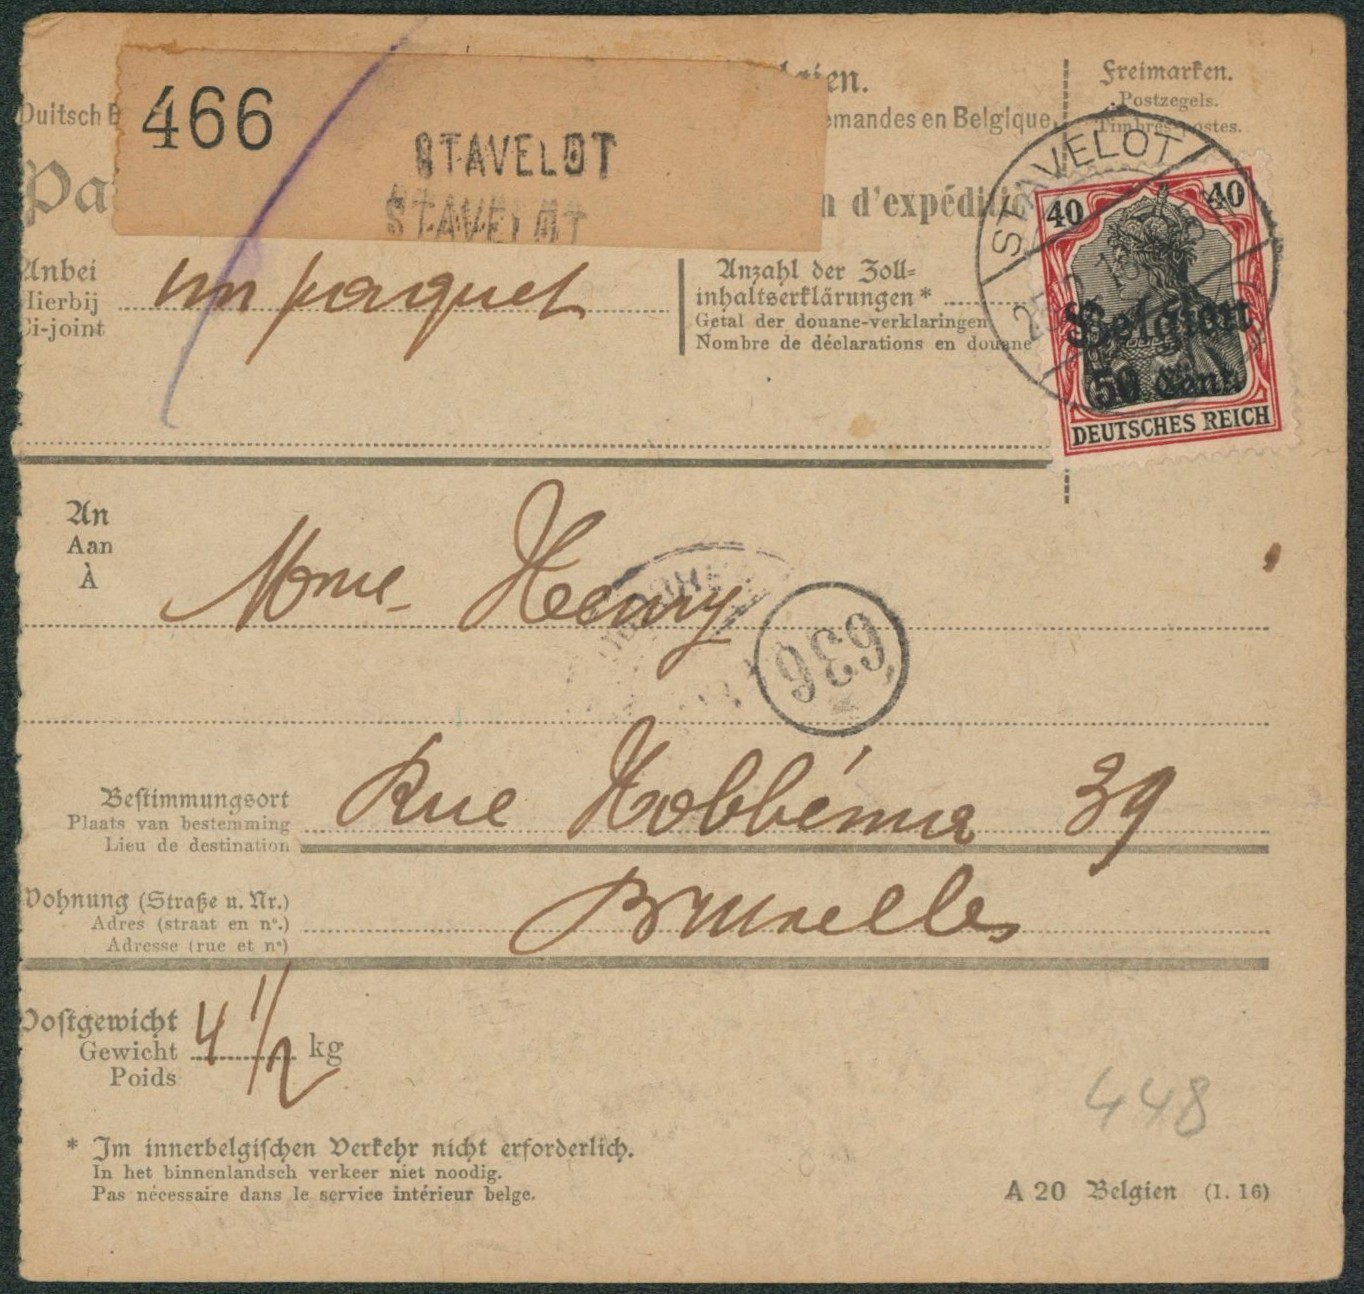 466
STAVELOT
STAVELOT
Duitsch
emandes en Belgique
Freimarken.
Postzegels.
Timbres-postes.
Pa
n d'expédition
STAVELOT
40 40
Belgien
50 Cent.
DEUTSCHES REICH
Anbei
Hierbij
Ci-joint
un paquet
Anzahl der Zoll-
inhaltserklärungen *
Getal der douane-verklaringen
Nombre de déclarations en douane
An
Aan
À
Mme Henry
636
Bestimmungsort
Plaats van bestemming
Lieu de destination
Rue Hobbéma 39
Wohnung (Straße u. Nr.)
Adres (straat en nº.)
Adresse (rue et nº)
Bruxelles
Postgewicht
Gewicht
Poids
4 1/2 kg
448
* Im innerbelgischen Verkehr nicht erforderlich.
In het binnenlandsch verkeer niet noodig.
Pas nécessaire dans le service intérieur belge.
A 20 Belgien (1. 16)